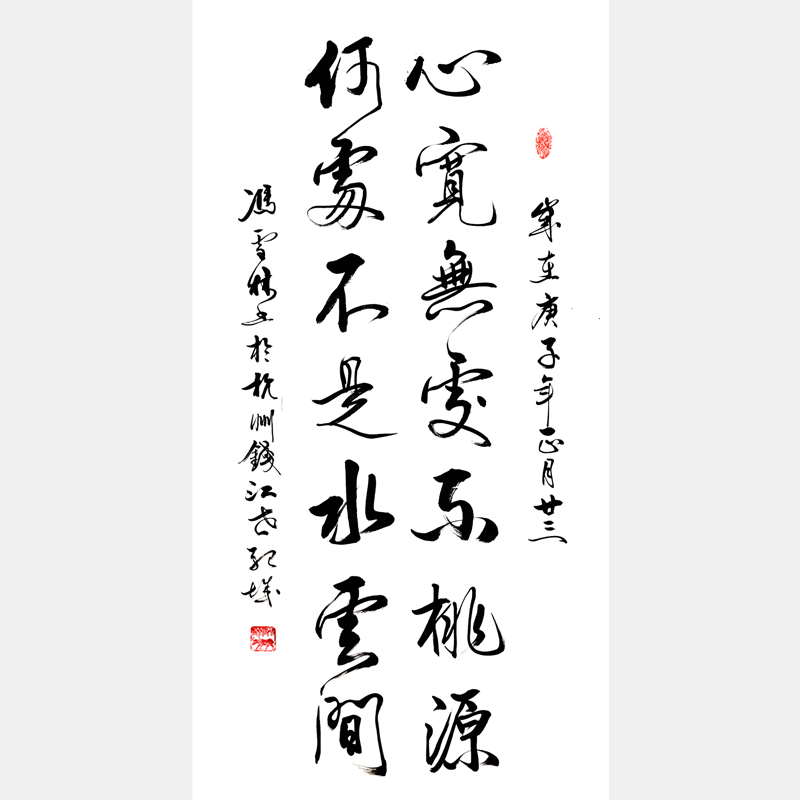 歲在庚子年正月廿三
心寬無處不桃源
何處不是水雲間
馮雪林書於杭州錢江世紀城